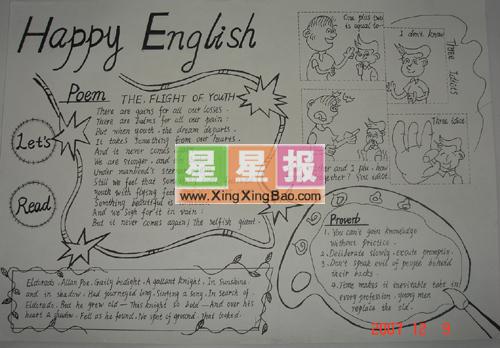 Happy English
One plus two
is equal to
I don't know
Three Idiots
Three idiots
Let's
Read
Poem
THE FLIGHT OF YOUTH
There are gains for all our losses.
There are balms for all our pain:
But when youth, the dream departs
It takes something from our hearts
And it never comes
We are stronger, and
Under manhood's
Still we feel that
Youth with flying feet
Something beautiful
And we sigh for it in vain:
But it never comes again; the selfish giant.
星星报
www.XingXingBao.com
Proverb
1. You can't gain knowledge
without practice.
2. Deliberate slowly, execute promptly.
3. Don't speak evil of people behind
their backs.
4. Time makes it inevitable that in
every profession, young men
replace the old.
Eldorado. Allan Poe. Gaily bedight. A gallant knight. In sunshine
and in shadow. Had journeyed long. Singing a song. In search of
Eldorado. But he grew old — This knight so bold — And over his
heart a shadow. Fell as he found. No spot of ground. That looked.
2007 12 9